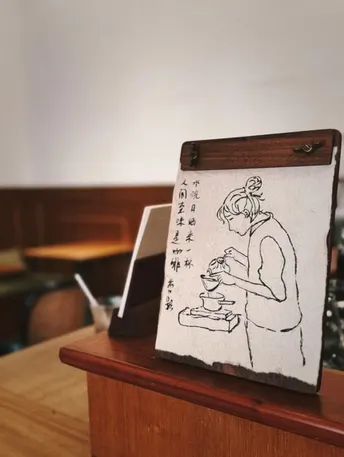 水洗日晒来一杯
人间至味是咖啡